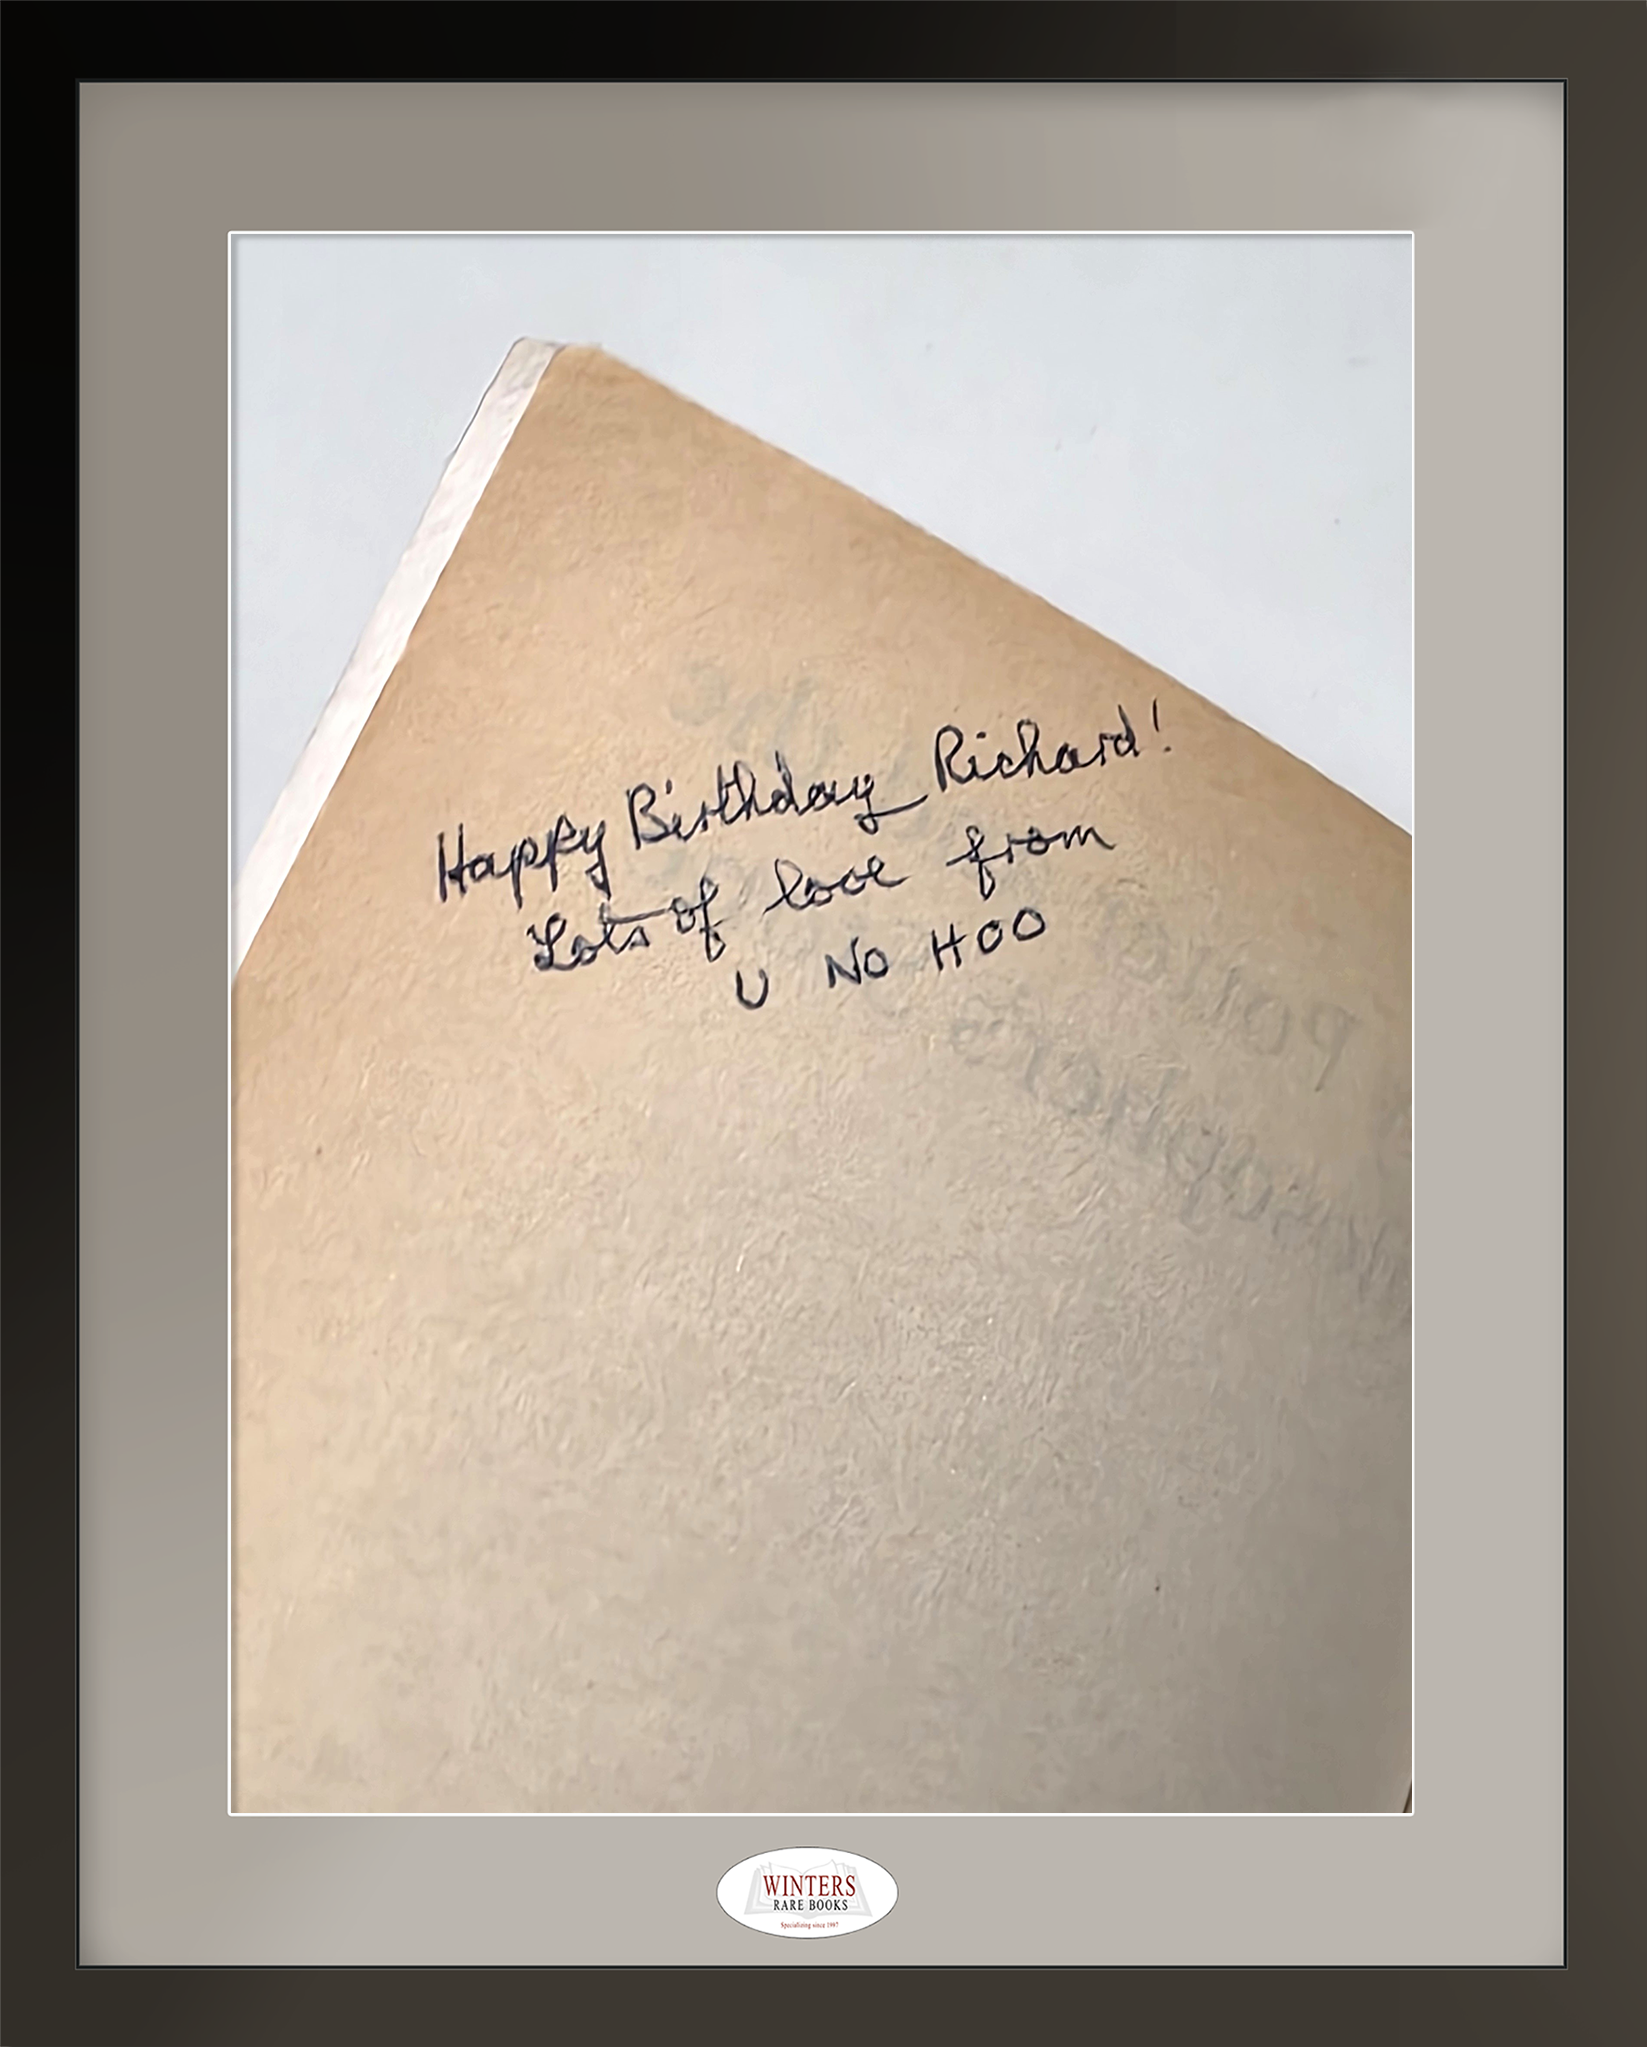 Happy Birthday Richard!
Lots of love from
U NO HOO
WINTERS
RARE BOOKS
Specializing since 1997